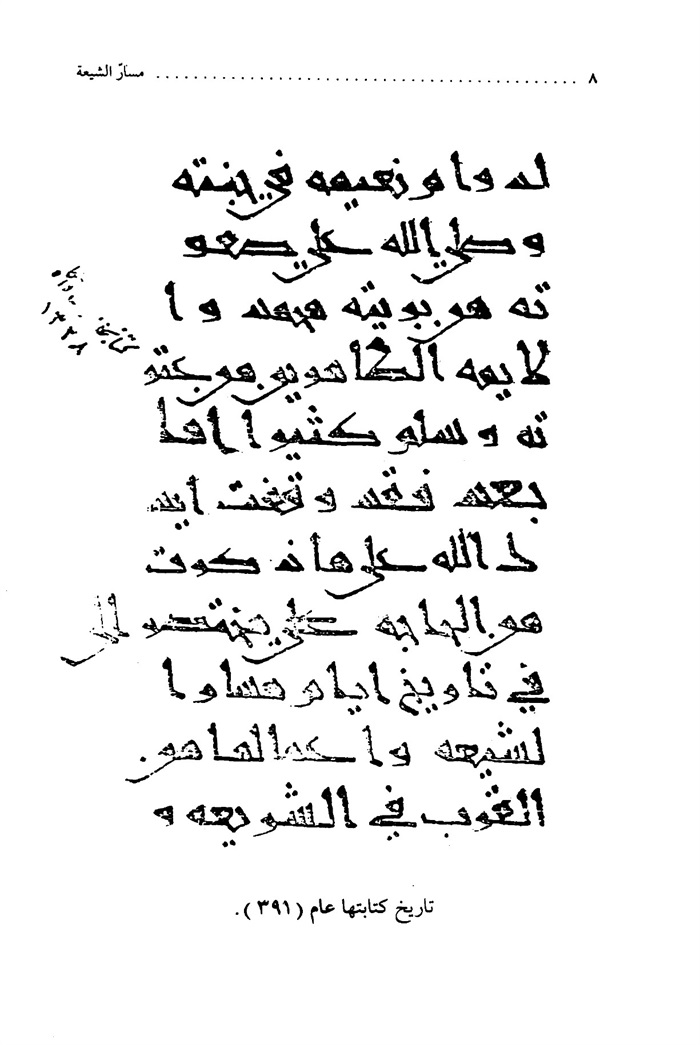 ٨ ........................................ مسارّ الشيعة
لدوام نعيمه في جنته
وصلي الله علي صفو
ته من بريته محمد وا
لايمه الطاهرين من عتر
ته وسلم كثيرا اما
بعد فقد وقفت ايد
ك الله علي ما ذكرت
من الحاجه مختصر
في تاريخ ايام مسار ا
لشيعه واعمالها من
القرب في الشريعه و
تاريخ كتابتها عام (٣٩١).